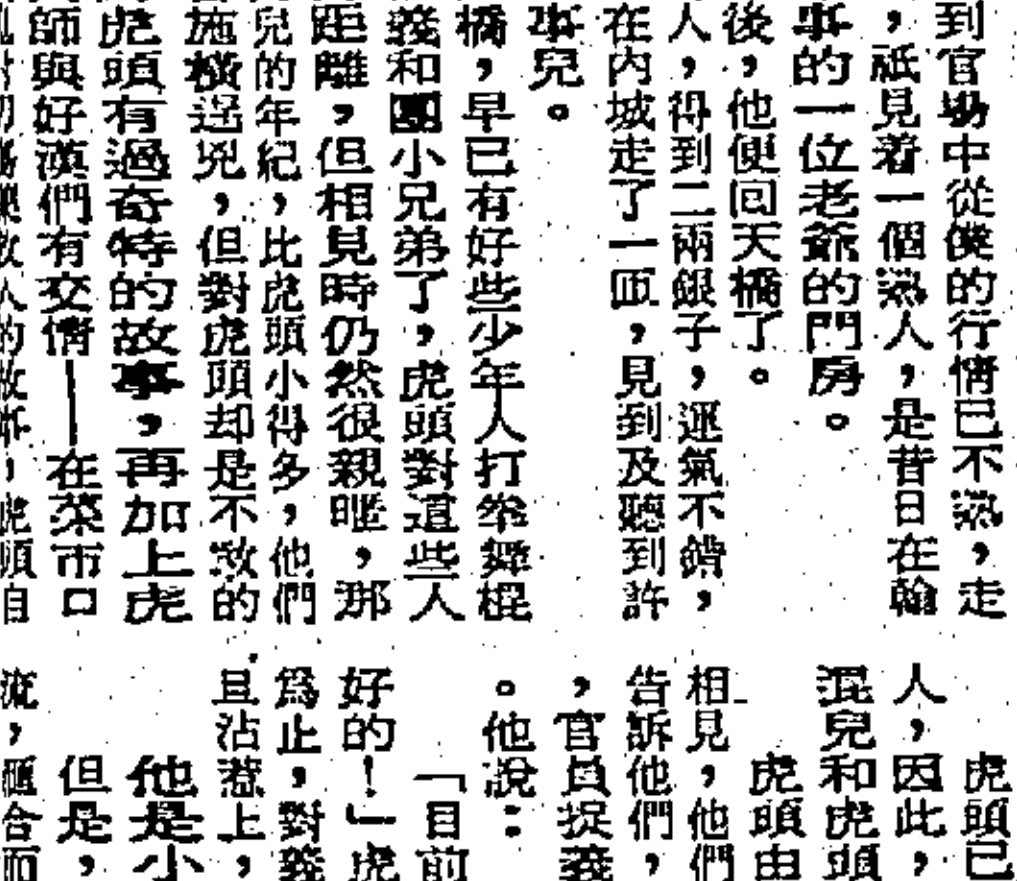 到官場中從僕的行情已不熱，走
，祇見着一個熟人，是昔日在翰
事的一位老爺的門房。
後，他便回天橋了。
人，得到二兩銀子，運氣不錯，
在内城走了一匝，見到及聽到許
事兒。
橋，早已有好些少年人打拳舞棍
義和團小兄弟了，虎頭對這些人
距離，但相見時仍然很親暱，那
兒的年紀，比虎頭小得多，他們
施橫逞兇，但對虎頭却是不敢的
虎頭有過奇特的故事，再加上虎
師與好漢們有交情——在菜市口
人的故事，虎頭自
虎頭已
人，因此，
混兒和虎頭
虎頭由
相見，他們
告訴他們，
，官員捉義
。他說：
「目前
好的！」虎
爲止，對義
且沾惹上，
他是小
但是，
流，合而